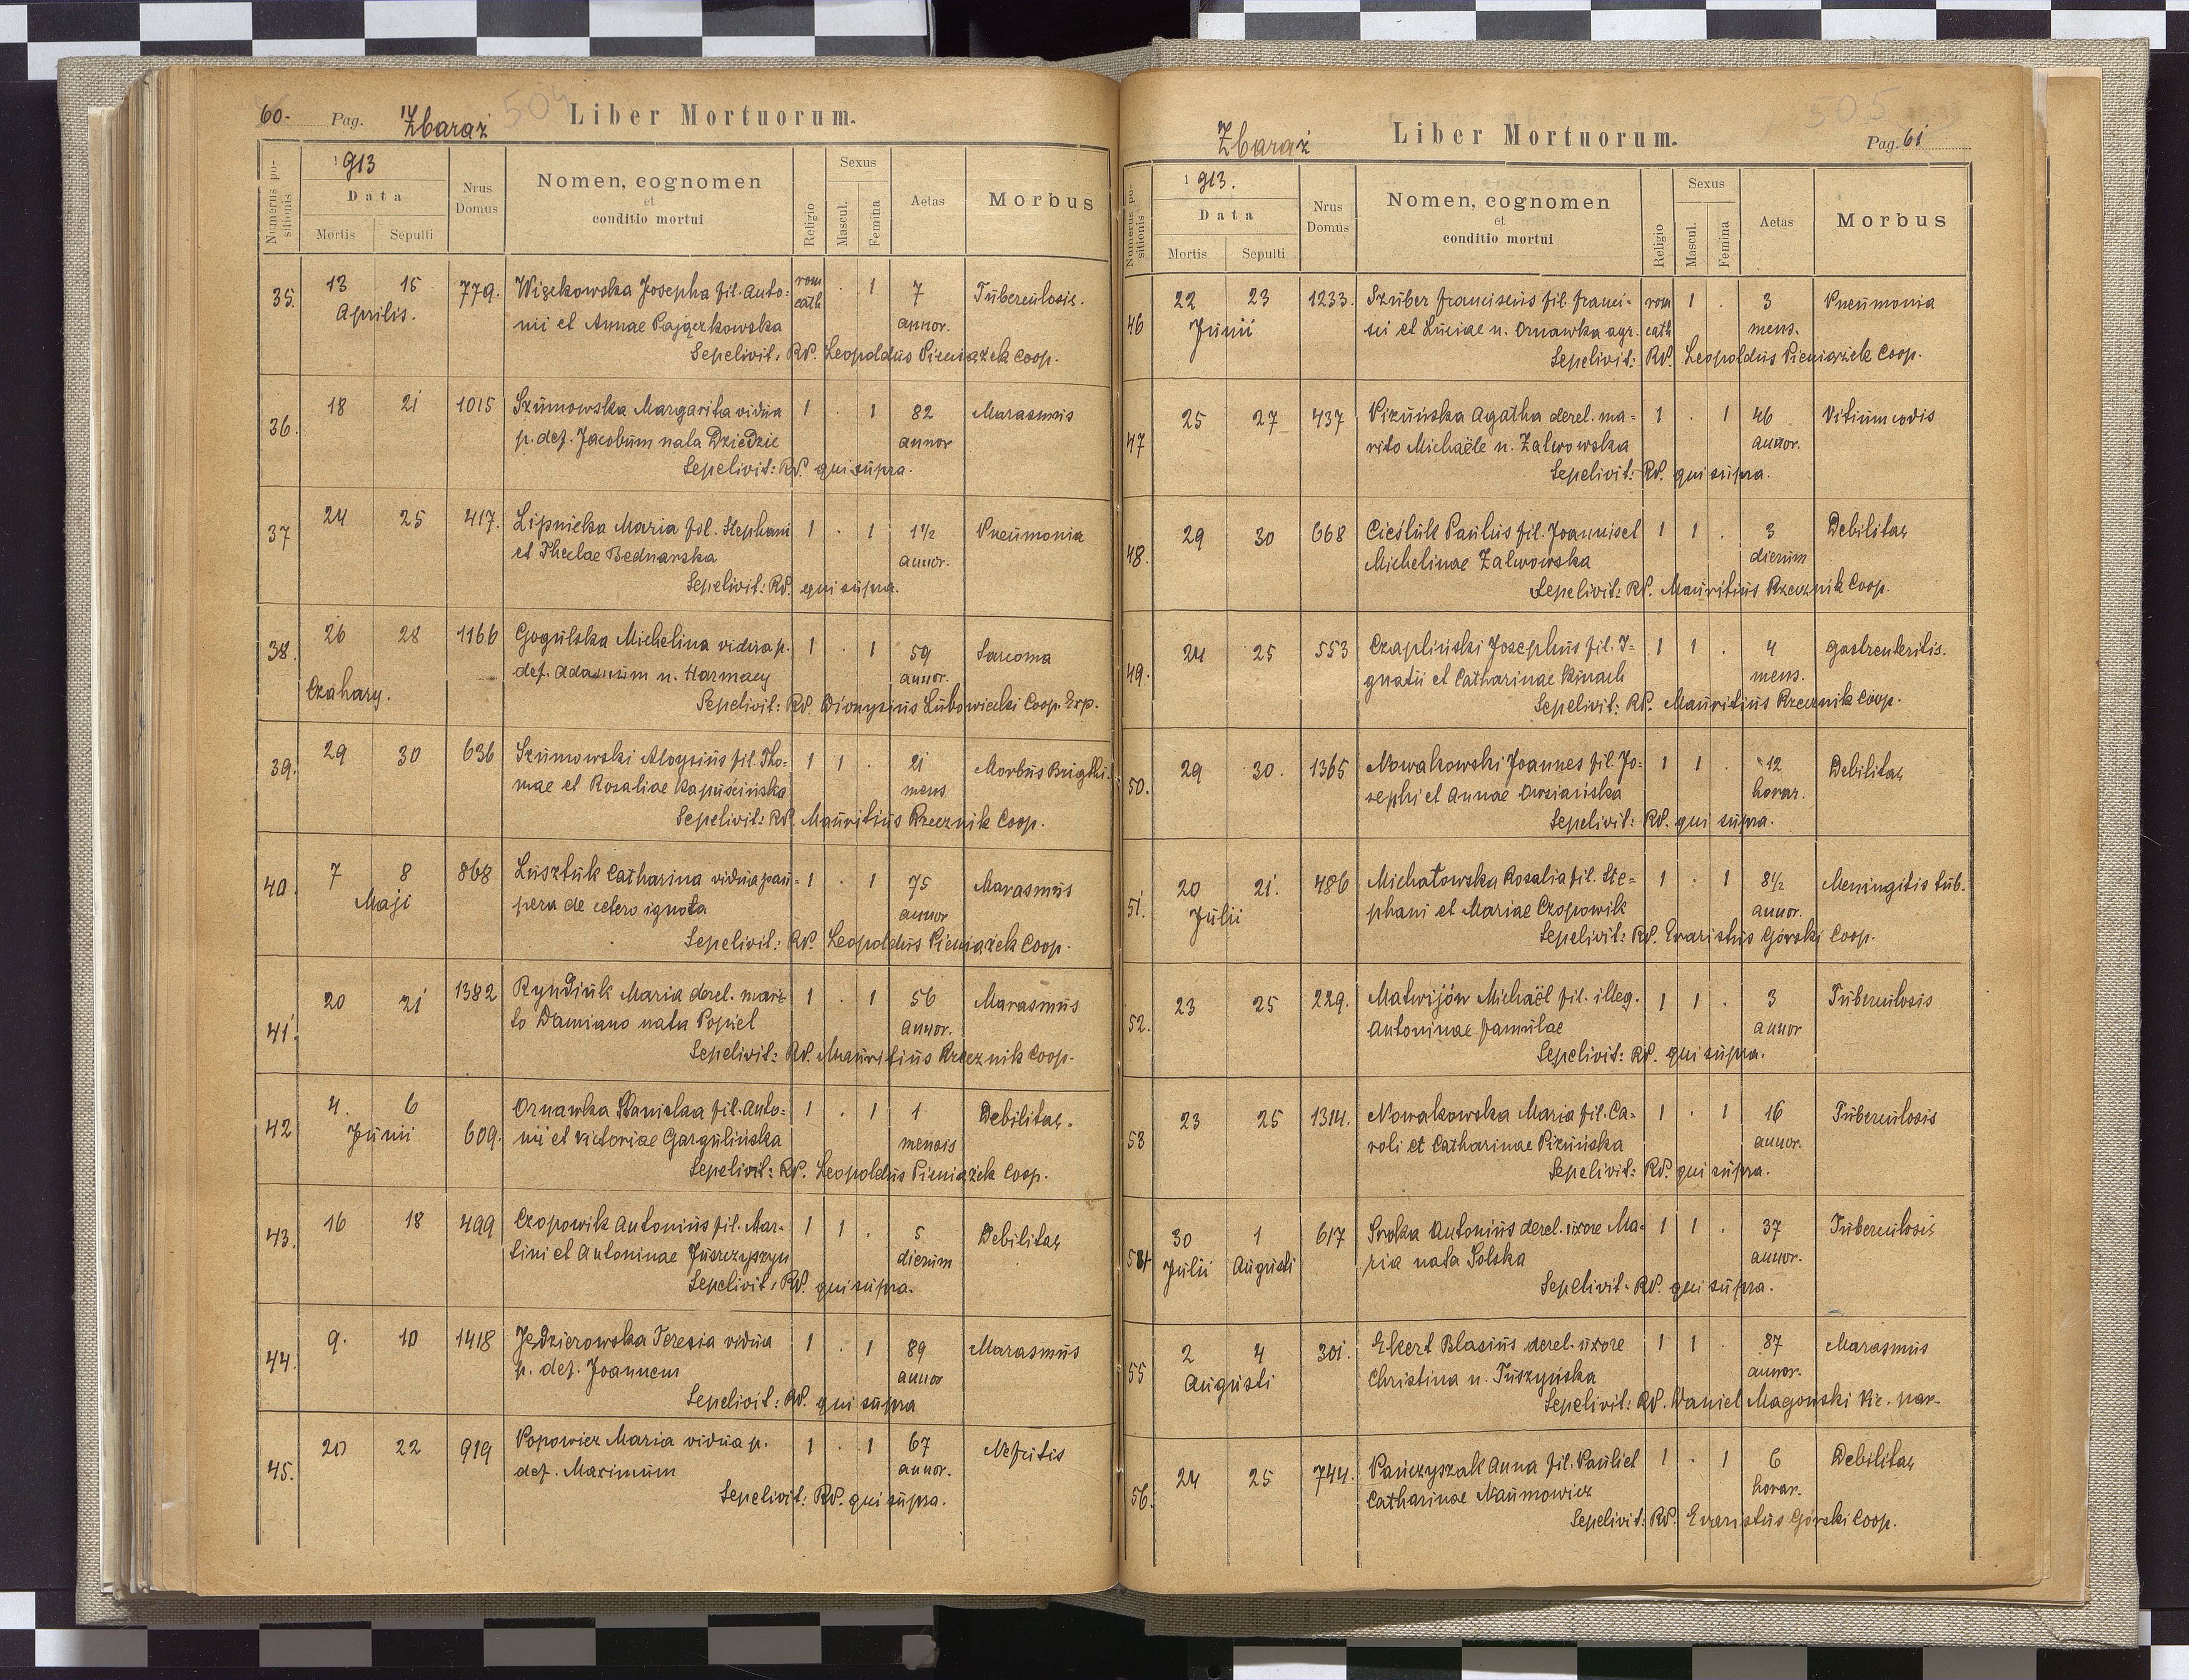 60. Pag. IV Zbaraż 504 Liber Mortuorum.
Numerus positionis
1913
Data
Mortis Sepulti
Nrus Domus
Nomen, cognomen
et
conditio mortui
Religio
Sexus
Mascul. Femina
Aetas
Morbus
35. 13 15 779. Wizekowska Josepha fil. Anto= rom . 1 7 Tüberculosis.
Aprilis. nii et Annae Pajączkowska cath annor.
Sepelivit: RP. Leopoldus Pieniążek Coop.
36. 18 21 1015 Szumowska Margarita vidua 1 . 1 82 Marasmus
p. def. Jacobum nata Dziedzic annor
Sepelivit: RP. qui supra.
37 24 25 417. Lipnicka Maria fil. Stephani 1 . 1 1½ Pneumonia
et Theclae Bednarska annor.
Sepelivit: RP. qui supra.
38. 26 28 1166 Gogulska Michelina vidua p. 1 . 1 59 Sarcoma
def. Adamum n. Harmacy annor.
Czahary.
Sepelivit: RP. Dionysius Lubowiecki Coop. Exp.
39. 29 30 636 Szumowski Aloysius fil. Tho= 1 1 . 21 Morbus Brigthi.
mae et Rosaliae Kapuścińska mens
Sepelivit: RP. Mauritius Rzeznik Coop.
40. 7 8 868 Lusztuk Catharina vidua pau= 1 . 1 75 Marasmus
Maji pera de cetero ignota annor
Sepelivit: RP. Leopoldus Pieniążek Coop.
41. 20 21 1382 Ryndiuk Maria derel. mari= 1 . 1 56 Marasmus
to Damiano nata Popiel annor.
Sepelivit: RP. Mauritius Rzeznik Coop.
42 4. 6 Ornawka Stanislaa fil. Anto= 1 . 1 1 Debilitas.
Junii 609. nii et Victoriae Gargulińska mensis
Sepelivit: RP. Leopoldus Pieniążek Coop.
43. 16 18 499 Czopowik Antonius fil. Mar= 1 1 . 5 Debilitas
tini et Antoninae Juszczyszyn dierum
Sepelivit: RP. qui supra.
44. 9. 10 1418 Jędzierowska Teresia vidua 1 . 1 89 Marasmus
p. def. Joannem annor
Sepelivit: RP. qui supra
45. 20 22 919 Popowicz Maria vidua p. 1 . 1 67 Nefritis
def. Maximum annor.
Sepelivit: RP. qui supra.
Zbaraż Liber Mortuorum. 505 Pag. 61
Numerus positionis
1913.
Data
Mortis Sepulti
Nrus Domus
Nomen, cognomen
et
conditio mortui
Religio
Sexus
Mascul. Femina
Aetas
Morbus
46 22 23 1233. Szuber Franciscus fil. Franci= rom 1 . 3 Pneumonia
Junii sci et Luciae n. Ornawka agr. cath mens.
Sepelivit: RP. Leopoldus Pieniążek Coop.
47 25 27 437 Pizuńska Agatha derel. ma= 1 . 1 46 Vitium cordis
rito Michaële n. Zalwowska annor.
Sepelivit: RP. qui supra.
48. 29 30 668 Cieśluk Paulus fil. Joannis et 1 1 . 3 Debilitas
Michelinae Zalwowska dierum
Sepelivit: RP. Mauritius Rzeznik Coop.
49. 24 25 553 Czapliński Josephus fil. I= 1 1 . 4 Gastrenteritis.
gnatii et Catharinae Kinach mens.
Sepelivit: RP. Mauritius Rzeznik Coop.
50. 29 30. 1365 Nowakowski Joannes fil. Jo= 1 1 . 12 Debilitas
sephi et Annae Owsiańska horar.
Sepelivit: RP. qui supra.
51. 20 21. 486 Michałowska Rosalia fil. Ste= 1 . 1 8½ Meningitis tub.
Julii phani et Mariae Czopowik annor.
Sepelivit: RP. Evaristus Górski Coop.
52. 23 25 229. Matwijów Michaël fil. illeg. 1 1 . 3 Tuberculosis
Antoninae famulae annor
Sepelivit: RP. qui supra.
53 23 25 1314. Nowakowska Maria fil. Ca= 1 . 1 16 Tuberculosis
roli et Catharinae Pizuńska annor.
Sepelivit: RP. qui supra.
54 30 1 617 Sroka Antonius derel. uxore Ma= 1 1 . 37 Tuberculosis
Julii Augusti ria nata Solska annor.
Sepelivit: RP. qui supra.
55 2 4 301. Ekert Blasius derel. uxore 1 1 . 87 Marasmus
Augusti Christina n. Tuszyńska annor.
Sepelivit: RP. Daniel Magoński Vic. par.
56. 24 25 744. Pańczyszak Anna fil. Pauli et 1 . 1 6 Debilitas
Catharinae Naumowicz horar.
Sepelivit: RP. Evaristus Górski Coop.